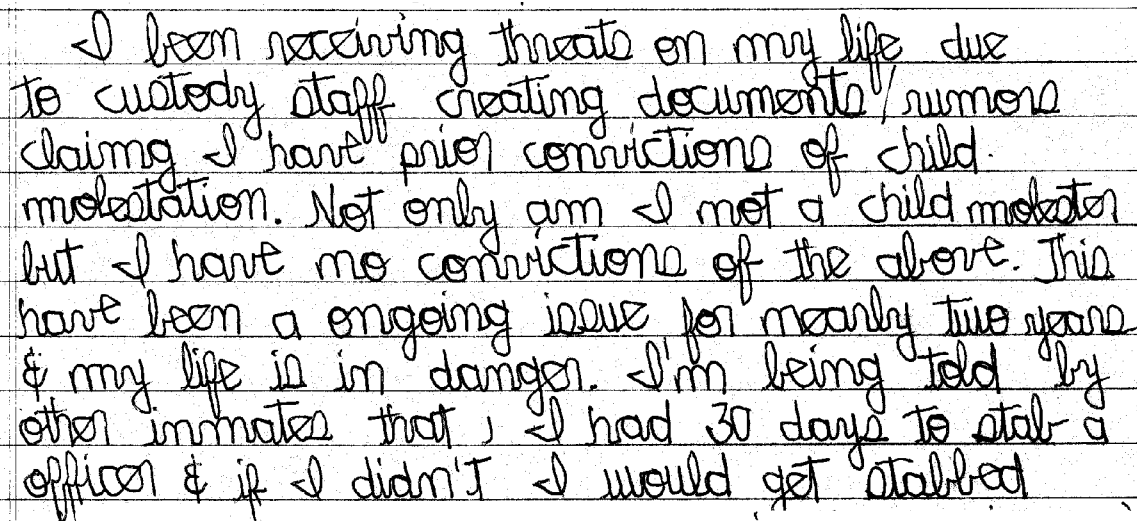 I been receiving threats on my life due
to custody staff creating documents/rumors
claimg I have prior convictions of child
molestation. Not only am I not a child molester
but I have no convictions of the above. This
have been a ongoing issue for nearly two years
& my life is in danger. I'm being told by
other inmates that, I had 30 days to stab a
officer & if I didn't I would get stabbed